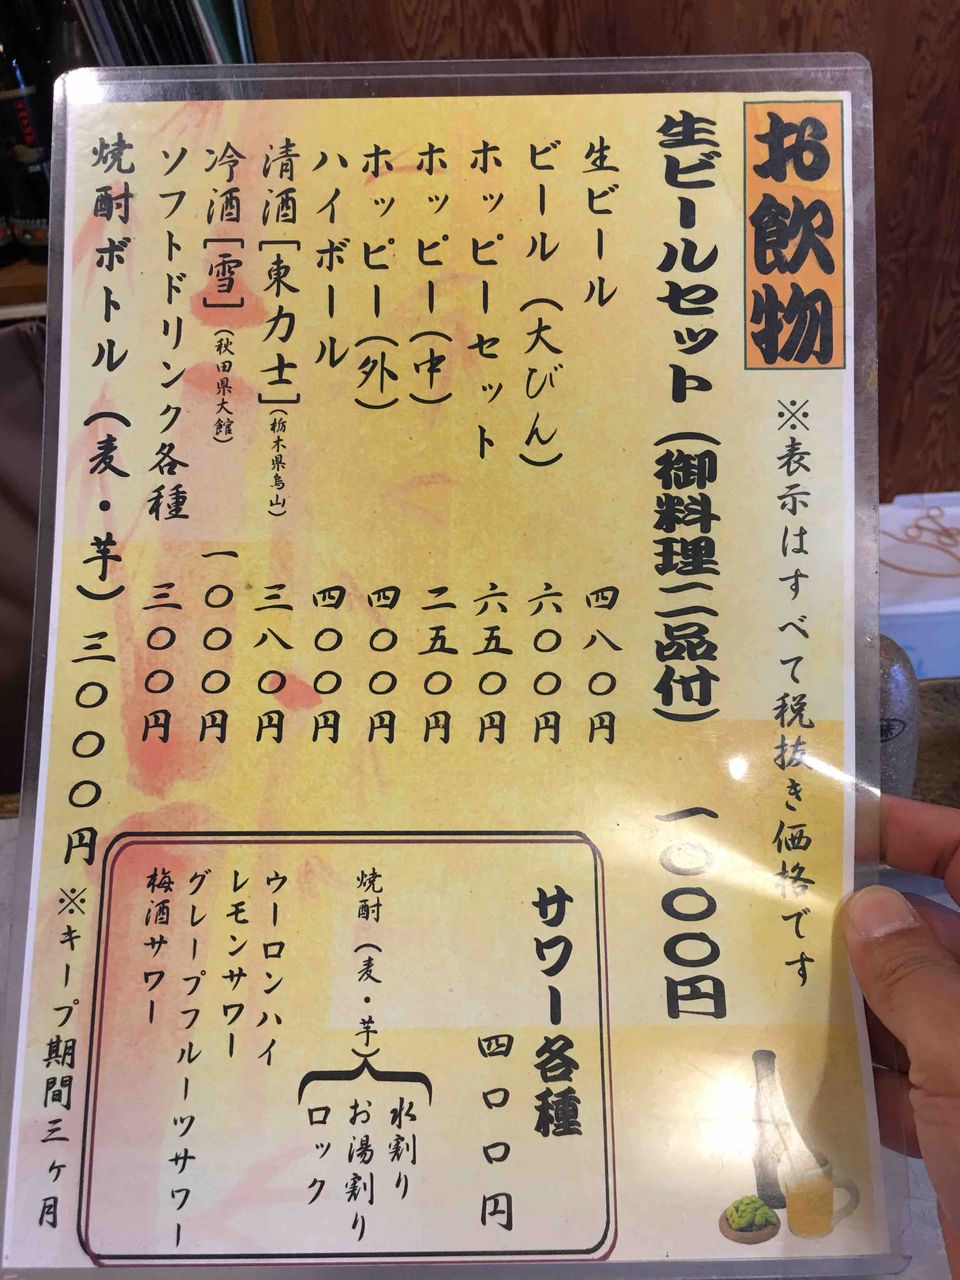 お飲物
※表示はすべて税抜き価格です
生ビールセット（御料理二品付） 一〇〇〇円
生ビール 四八〇円
ビール（大びん） 六〇〇円
ホッピーセット 六五〇円
ホッピー（中） 二五〇円
ホッピー（外） 四〇〇円
ハイボール 四〇〇円
清酒［東力士］（栃木県烏山） 三八〇円
冷酒［雪］（秋田県大館） 一〇〇〇円
ソフトドリンク各種 三〇〇円
焼酎ボトル（麦・芋） 三〇〇〇円 ※キープ期間三ヶ月
サワー各種
四〇〇円
焼酎（麦・芋）
水割り
お湯割り
ロック
ウーロンハイ
レモンサワー
グレープフルーツサワー
梅酒サワー